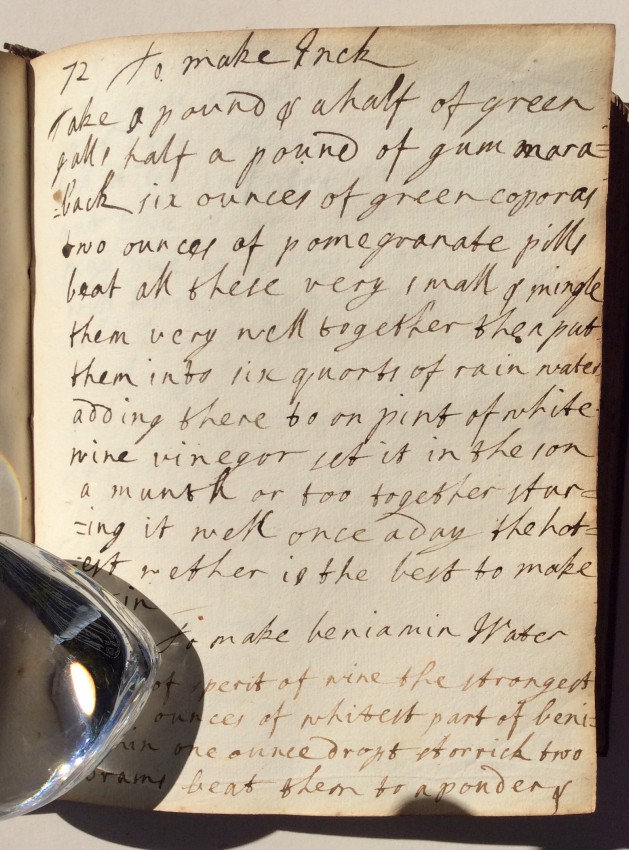 72 To make Inck
Take a pound & a half of green
galls half a pound of gum mara=
=back six ounces of green coporas
two ounces of pomegranate pills
beat all these very small & mingle
them very well together then put
them into six quorts of rain water
adding there to on pint of white
wine vinegor set it in the son
a munth or too together stur=
=ing it well once a day the hot=
=est wether is the best to make
in
To make beniamin Water
of sperit of wine the strongest
ounces of whitest part of beni=
min one ounce dropt storrick two
drams beat them to a pouder &